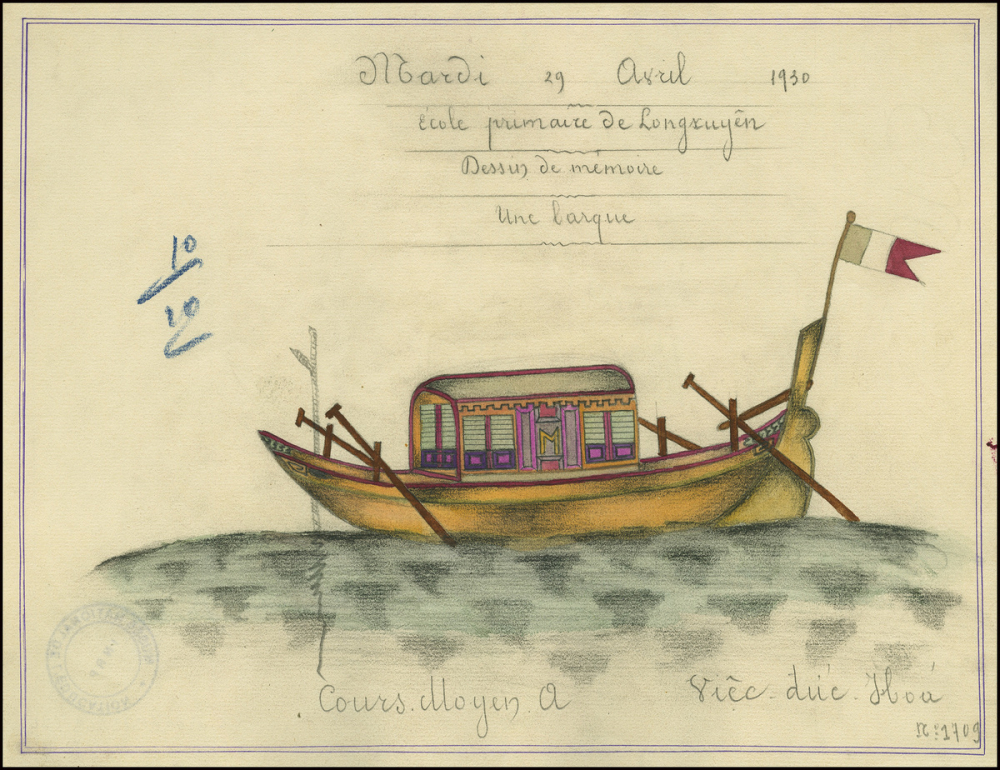 Mardi 29 Avril 1930
École primaire de Longxuyên
Dessin de mémoire
Une barque
10
10
M
Cours Moyen A
Việc đức Hoá
N° 1709